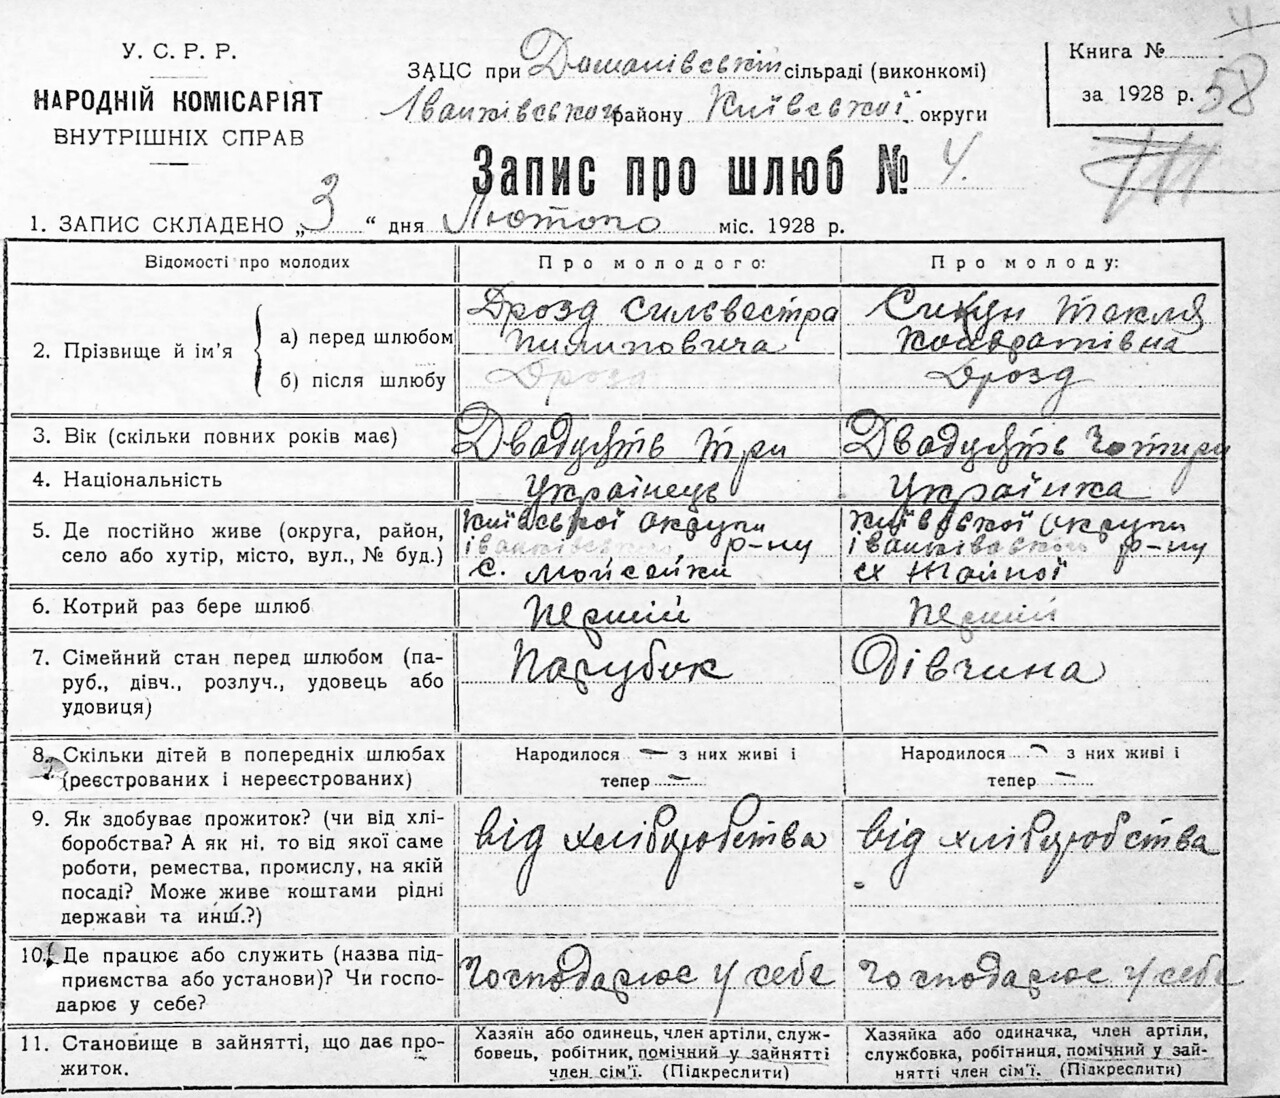 У. С. Р. Р.
НАРОДНІЙ КОМІСАРІЯТ
ВНУТРІШНІХ СПРАВ
ЗАЦС при Доманівській сільраді (виконкомі)
Іванківського району Київської округи
Книга №
за 1928 р. 58
4
Запис про шлюб № 4.
1. ЗАПИС СКЛАДЕНО „3“ дня Лютого міс. 1928 р.
Відомості про молодих
Про молодого:
Про молоду:
2. Прізвище й ім’я
а) перед шлюбом
б) після шлюбу
Дрозд Сильвестра
Пилиповича
Дрозд
Текля
Кондратівна
Дрозд
3. Вік (скільки повних років має)
Двадцять три
Двадцять чотири
4. Національність
Українець
Українка
5. Де постійно живе (округа, район,
село або хутір, місто, вул., № буд.)
Київської округи
Іванківського р-ну
с. Мойсейки
Київської округи
Іванківського р-ну
6. Котрий раз бере шлюб
Перший
Перший
7. Сімейний стан перед шлюбом (па-
руб., дівч., розлуч., удовець або
удовиця)
Парубок
Дівчина
8. Скільки дітей в попередніх шлюбах
(реєстрованих і нереєстрованих)
Народилося — з них живі і
тепер —
Народилося — з них живі і
тепер —
9. Як здобуває прожиток? (чи від хлі-
боробства? А як ні, то від якої саме
роботи, ремества, промислу, на якій
посаді? Може живе коштами рідні
держави та инш.?)
від хліборобства
від хліборобства
10. Де працює або служить (назва під-
приємства або установи)? Чи госпо-
дарює у себе?
Господарює у себе
Господарює у себе
11. Становище в зайнятті, що дає про-
житок.
Хазяїн або одинець, член артіли, служ-
бовець, робітник, помічний у зайнятті
член сім’ї. (Підкреслити)
Хазяйка або одиначка, член артіли,
службовка, робітниця, помічний у зай-
нятті член сім’ї. (Підкреслити)